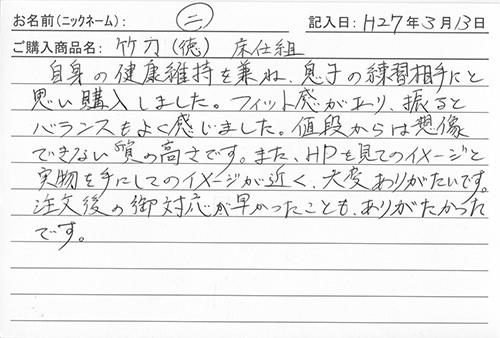 お名前(ニックネーム): ㊁ 記入日: H27年3月13日
ご購入商品名: 竹刀(徳) 床仕組
自身の健康維持を兼ね、息子の練習相手にと
思い購入しました。フィット感があり、振ると
バランスもよく感じました。値段からは想像
できない質の高さです。また、HPを見てのイメージと
実物を手にしてのイメージが近く、大変ありがたいです。
注文後の御対応が早かったことも、ありがたかった
です。